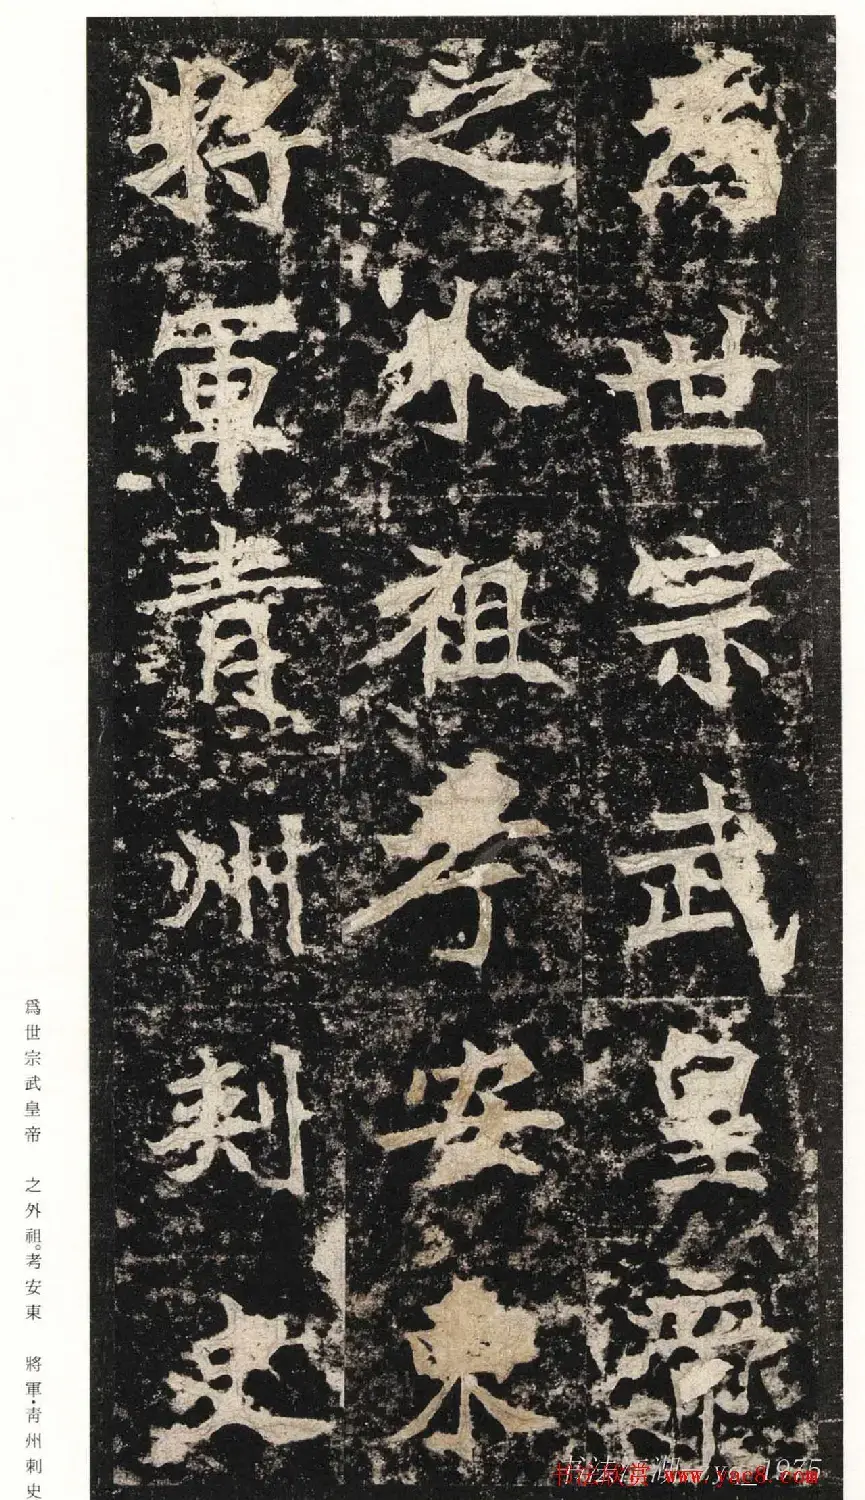 爲世宗武皇帝
之外祖考安東
將軍青州刺史
爲世宗武皇帝 之外祖。考安東 將軍·青州刺史
www.yac8.com